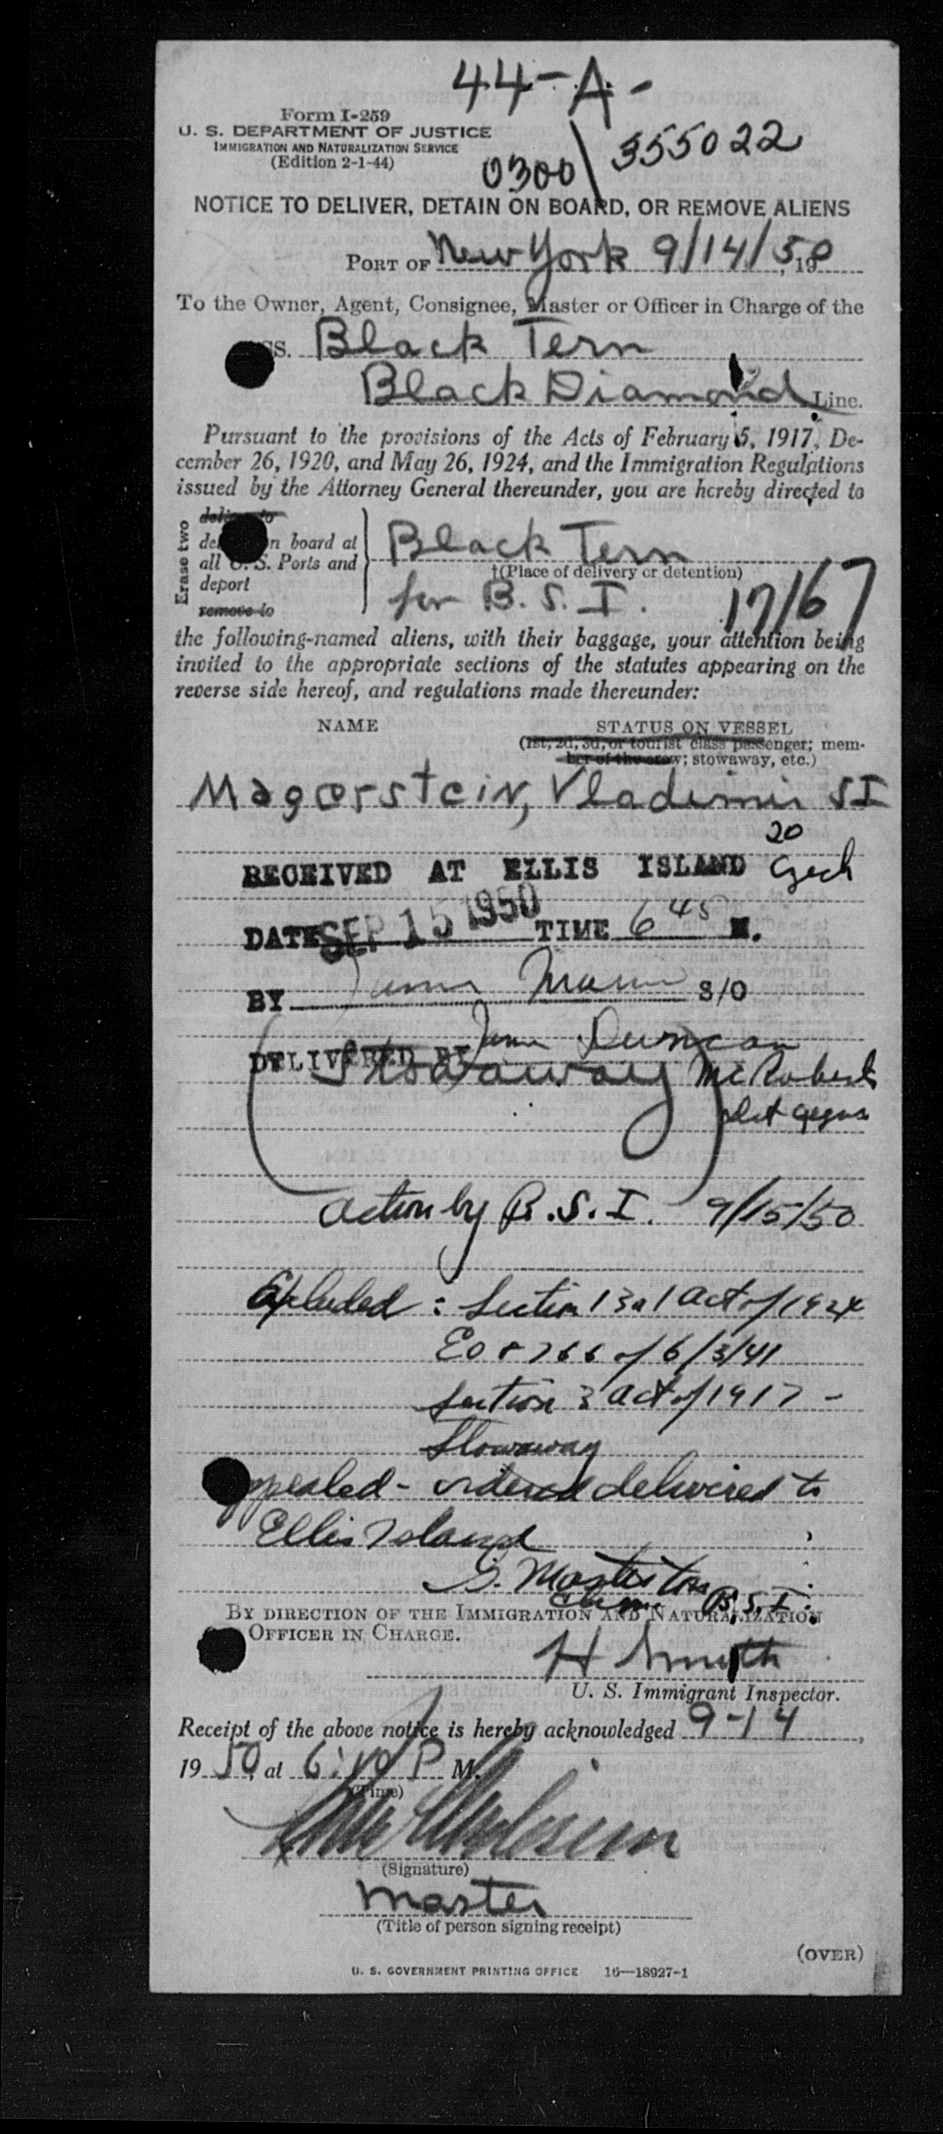 44-A-
Form I-259
U. S. DEPARTMENT OF JUSTICE
IMMIGRATION AND NATURALIZATION SERVICE
(Edition 2-1-44)
0300 \ 355022
NOTICE TO DELIVER, DETAIN ON BOARD, OR REMOVE ALIENS
PORT OF New York 9/14/50, 19
To the Owner, Agent, Consignee, Master or Officer in Charge of the
SS. Black Tern
Black Diamond Line.
Pursuant to the provisions of the Acts of February 5, 1917, De-
cember 26, 1920, and May 26, 1924, and the Immigration Regulations
issued by the Attorney General thereunder, you are hereby directed to
Erase two
deliver to
on board at
all U. S. Ports and
deport
remove to
Black Tern
†(Place of delivery or detention)
for B. S. I. 17/67
the following-named aliens, with their baggage, your attention being
invited to the appropriate sections of the statutes appearing on the
reverse side hereof, and regulations made thereunder:
NAME STATUS ON VESSEL
(1st, 2d, 3d, or tourist class passenger; mem-
ber of the crew; stowaway, etc.)
Magerstein, Vladimir SI
20
RECEIVED AT ELLIS ISLAND Czech
DATE SEP 15 1950 TIME 6 45 M.
BY S/O
Duncan
DELIVERED BY
Stowaway McRoberts
action by B. S. I. 9/15/50
Excluded : Section 13a1 Act of 1924
EO 8766 of 6/3/41
Section 3 Act of 1917 -
Stowaway
Appealed - ordered delivered to
Ellis Island
B. S. I.
BY DIRECTION OF THE IMMIGRATION AND NATURALIZATION
OFFICER IN CHARGE.
H Smyth
U. S. Immigrant Inspector.
Receipt of the above notice is hereby acknowledged 9-14,
19 50, at 6:10 P M.
(Time)
(Signature)
Master
(Title of person signing receipt)
(OVER)
U. S. GOVERNMENT PRINTING OFFICE 16—18927-1